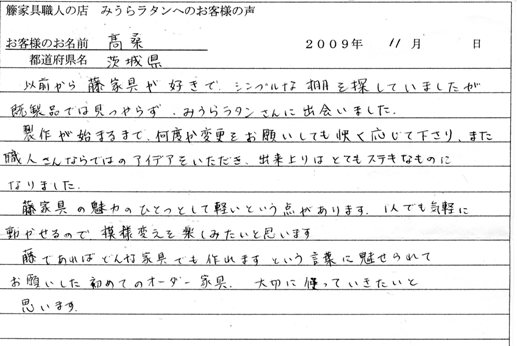 籐家具職人の店 みうらラタンへのお客様の声
お客様のお名前 高桑 2009年 11月 日
都道府県名 茨城県
以前から籐家具が好きで、シンプルな棚を探していましたが
既製品では見つからず、みうらラタンさんに出会いました。
製作が始まるまで、何度か変更をお願いしても快く応じて下さり、また
職人さんならではのアイデアをいただき、出来上りはとてもステキなものに
なりました。
籐家具の魅力のひとつとして軽いという点があります。1人でも気軽に
動かせるので、模様変えを楽しみたいと思います
籐であればどんな家具でも作れますという言葉に魅せられて
お願いした初めてのオーダー家具。大切に使っていきたいと
思います。